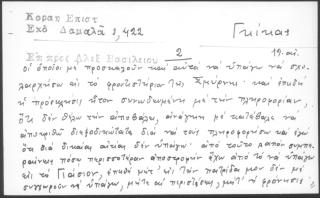 Κοραῆ Ἐπιστ
Ἐκδ Δαμαλᾶ 1, 422
Γκίκας
Ἐπ πρὸς Ἀλεξ Βασιλείου
2
19.αι.
οἱ ὁποῖοι μὲ προσκαλοῦν καὶ αὐτοὶ νὰ ὑπάγω νὰ σχο-
λαρχήσω εἰς τὸ φροντιστήριον τῆς Σμύρνης· καὶ ἐπειδὴ
ἡ πρόσκλησις ἦτον συνωδευμένη μὲ τὴν πληροφορίαν,
ὅτι δὲν θέλω τὴν ἀποβάλει, ἀνάγκη μὲ κατέλαβε νὰ
ἀποκριθῶ διεξοδικώτατα διὰ νὰ τοὺς πληροφορήσω καὶ ἐγὼ
ὅτι διὰ δικαίας αἰτίας δὲν ὑπάγω· ἀπὸ τοῦτο λοιπὸν συμπε-
ραίνεις πόσον περισσοτέραν ἀποστροφὴν ἔχω ἀπὸ τὸ νὰ ὑπάγω
εἰς τὸ Γιάσιον, ἐπειδὴ μήτ' εἰς τὴν πατρίδα μου δὲν μὲ
συγχωροῦν νὰ ὑπάγω, μήτε αἱ περιστάσεις, μήτ' ἡ φρόνησις